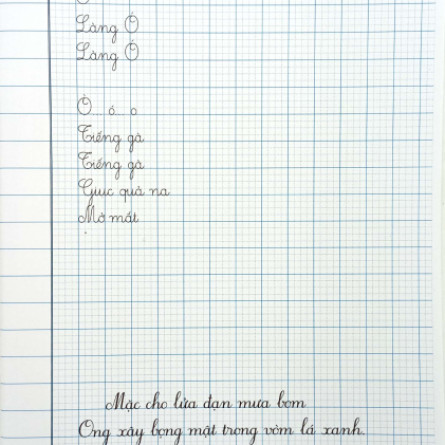 Làng Ó
Làng Ó
Ò ó o
Tiếng gà
Tiếng gà
Giục quả na
Mở mắt
Mặc cho lửa đạn mưa bom
Ong xây bọng mật trong vòm lá xanh